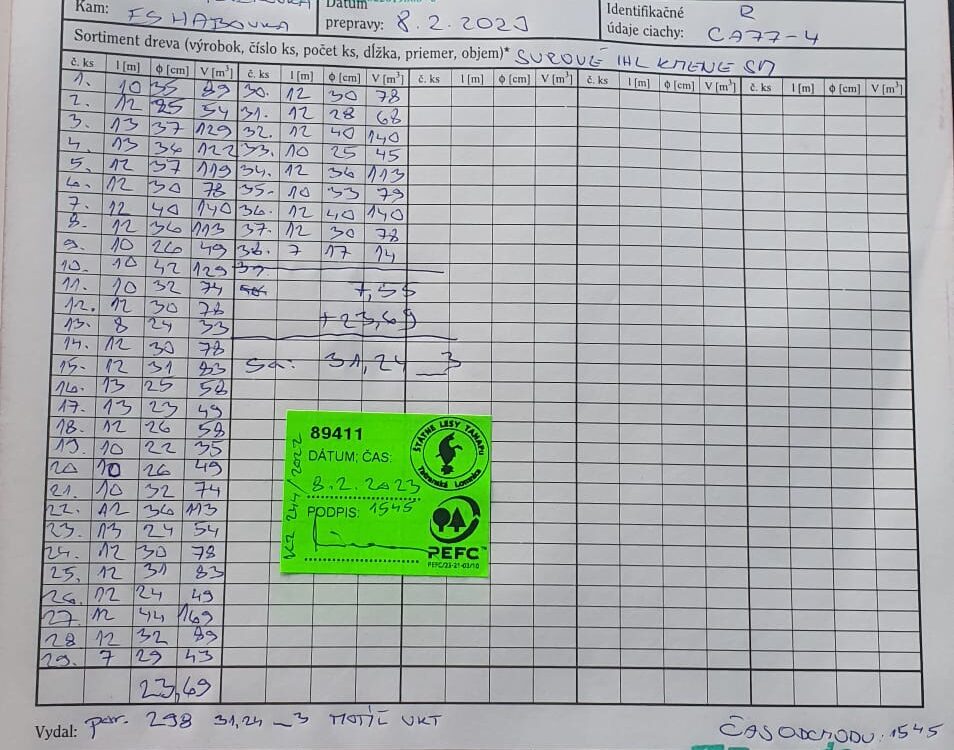 Kam: ES HABOVKA Dátum prepravy: 8.2.2023 Identifikačné údaje ciachy: R CA77-4
Sortiment dreva (výrobok, číslo ks, počet ks, dĺžka, priemer, objem)* SUROVÉ IHL KMENE SM
č. ks l [m] ϕ [cm] V [m³] č. ks l [m] ϕ [cm] V [m³] č. ks l [m] ϕ [cm] V [m³] č. ks l [m] ϕ [cm] V [m³] č. ks l [m] ϕ [cm] V [m³]
1. 10 35 89 30. 12 30 78
2. 12 25 54 31. 12 28 68
3. 13 37 129 32. 12 40 140
4. 13 36 122 33. 10 25 45
5. 12 37 119 34. 12 36 113
6. 12 30 78 35. 10 33 79
7. 12 40 140 36. 12 40 140
8. 12 36 113 37. 12 30 78
9. 10 26 49 38. 7 17 14
10. 10 42 129 39.
11. 10 32 74 7,55
12. 12 30 78 +23,69
13. 8 24 33
14. 12 30 78
15. 12 31 83 Sa: 31,24 _3
16. 13 25 58
17. 13 23 49
18. 12 26 58
19. 10 22 35
20 10 26 49
21. 10 32 74
22. 12 36 113
23. 13 24 54
24. 12 30 78
25. 12 31 83
26. 12 24 49
27. 12 44 169
28 12 32 89
29. 7 29 43
23,69
89411
DÁTUM; ČAS:
8.2.2023
PODPIS: 1545
KZ 244/2022
ŠTÁTNE LESY TANAPU
Tatranská Lomnica
PEFC™
PEFC/23-21-03/10
Vydal: por. 298 31,24 _3 MOTÍĽ VKT
ČAS ODCHODU: 1545